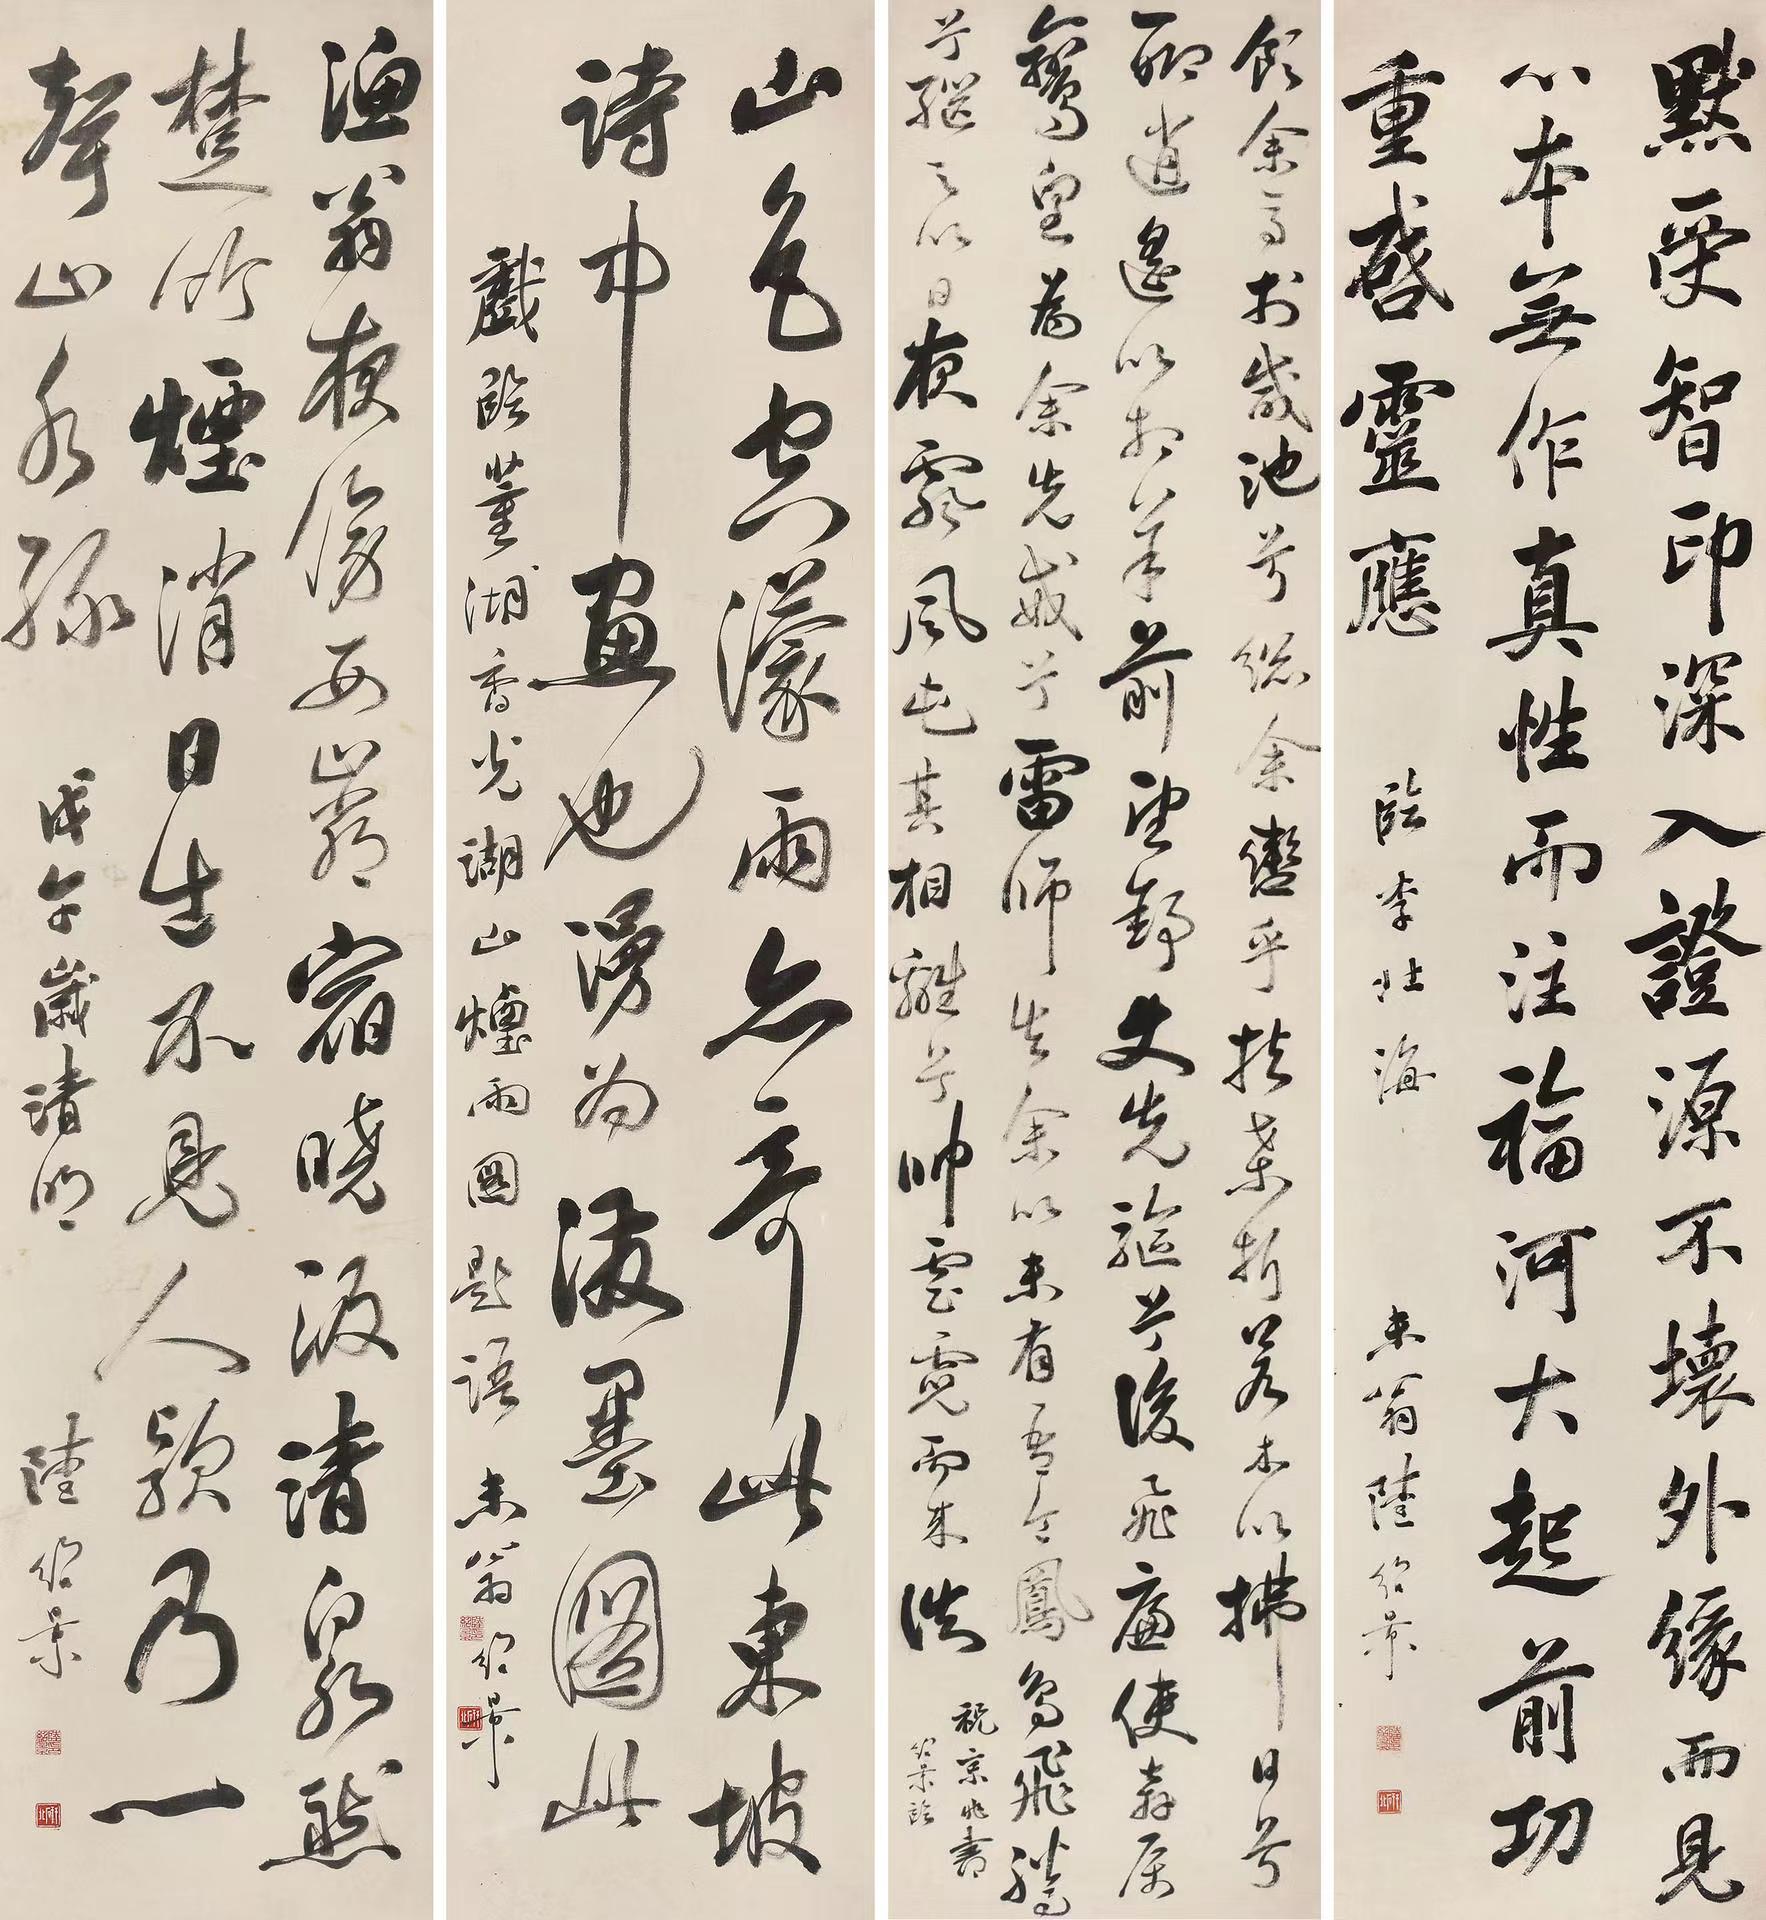 默受智印深入證源不壞外緣而見
心本無作真性而注福河大起前功
重啟靈應
臨李北海
未翁陸紹景
飲余馬於咸池兮総余轡乎扶桑折若木以拂日兮
聊逍遙以相羊前望舒父先驅兮後飛廉使奔屬
鸞皇為余先戒兮雷師告余以未有吾令鳳鳥飛騰
兮繼之以日夜飄風屯其相離兮帥雲霓而來
祝京兆書
紹景臨
山色空濛雨亦奇此東坡
詩中畫也湯為潑墨圖此
戲臨董湖香光湖山煙雨圖題語
未翁紹景
漁翁夜傍西巖宿曉汲清泉然
楚竹煙消日出不見人欸乃一
聲山水綠
戊午歲清明
陸紹景